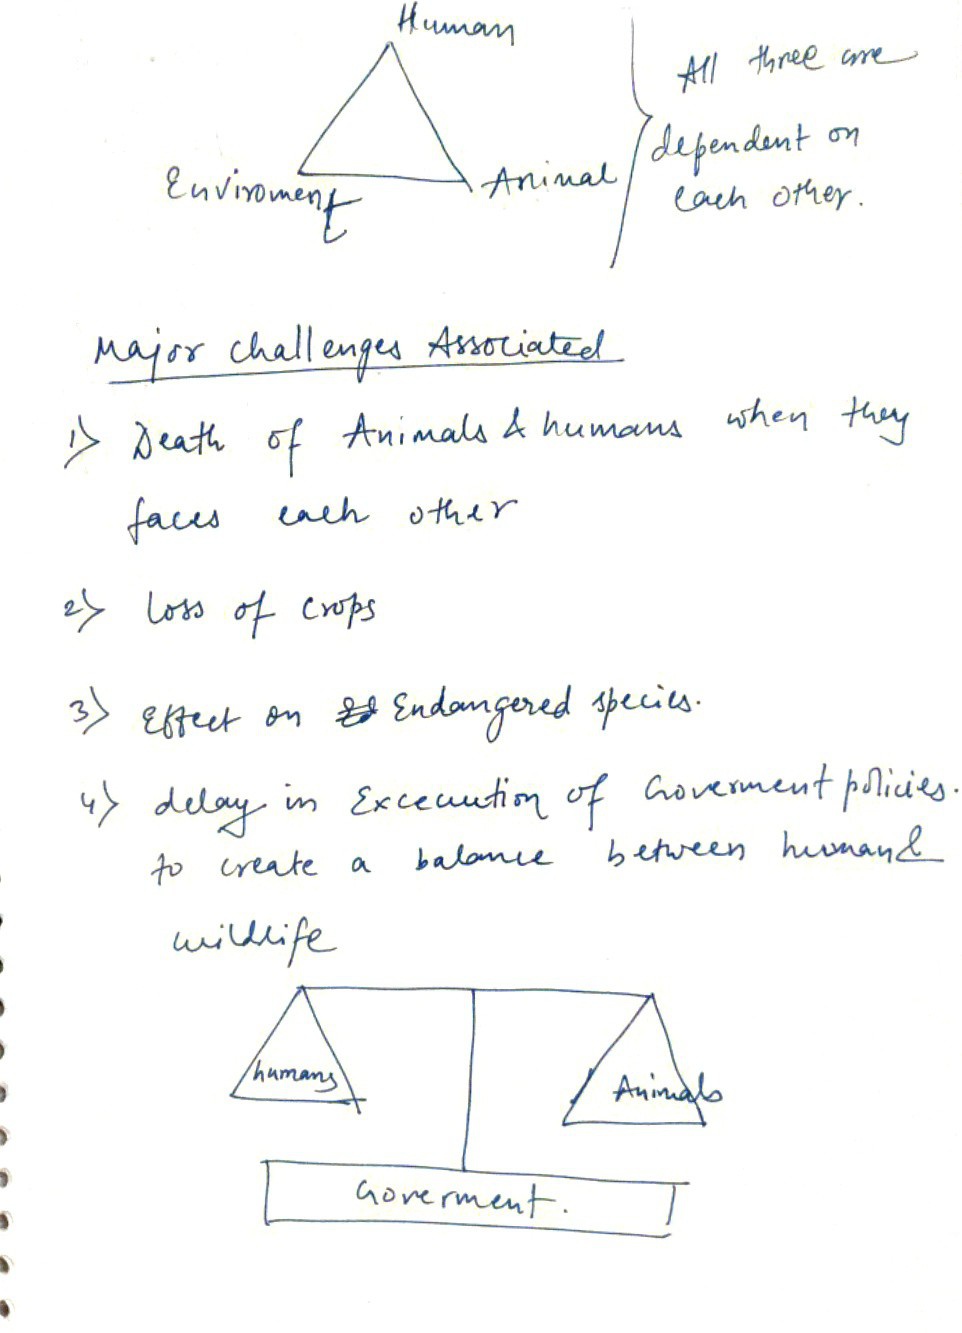 Human
All three are
dependent on
each other.
Enviroment
Animal
Major challenges Associated
1) Death of Animals & humans when they
faces each other
2) Loss of crops
3) Effect on Endangered species.
4) delay in Excecution of Goverment policies.
to create a balance between human &
wildlife
humans
Animals
Goverment.